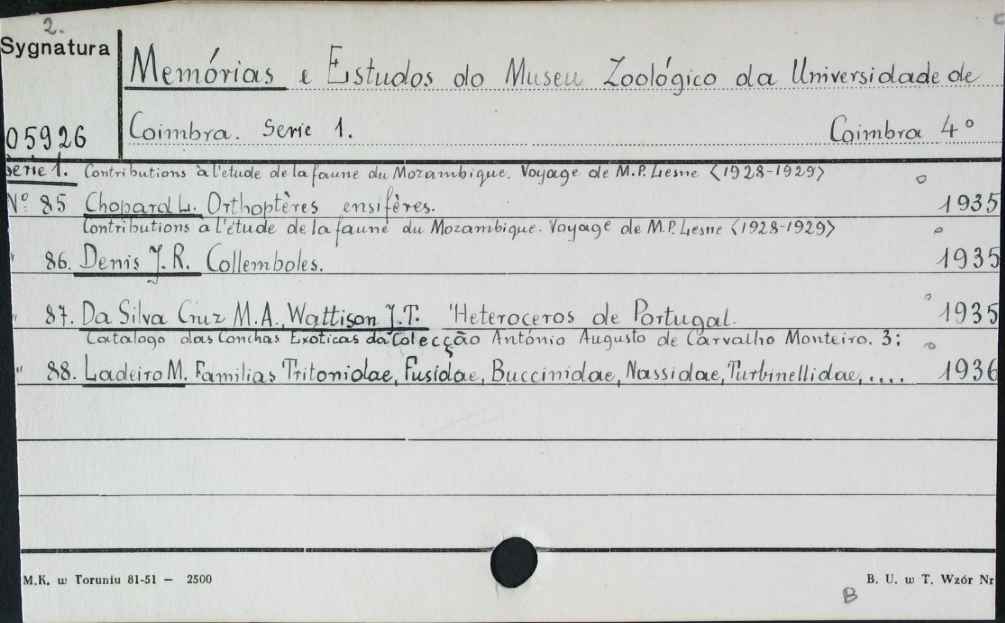 2.
Sygnatura
Memórias e Estudos do Museu Zoológico da Universidade de
05926 Coimbra. Serie 1. Coimbra 4°
Serie 1. Contributions à l'étude de la faune du Mozambique. Voyage de M.P. Lesne <1928-1929>
N° 85 Chopard L. Orthoptères ensifères. 1935
Contributions a l'étude de la faune du Mozambique. Voyage de M.P. Lesne <1928-1929>
" 86. Denis J.R. Collemboles. 1935
" 87. Da Silva Cruz M.A., Wattison J.T. "Heteroceros de Portugal. 1935
Catalogo das Conchas Exóticas da Colecção António Augusto de Carvalho Monteiro. 3:
" 88. Ladeiro M. Familias Tritonidae, Fusidae, Buccinidae, Nassidae, Turbinellidae, .... 1936
M.K. w Toruniu 81-51 — 2500 B. U. w T. Wzór Nr
B